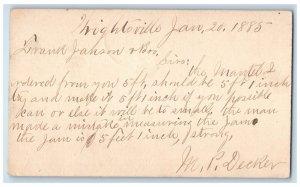 Wrightsville Jan, 20, 1885
Sirs: the Mantel I
ordered from you 5 ft, should be 5 ft 1 inch
try and make it 5 ft 1 inch if you posible
kan or else it will be to small, the man
made a mistake measuring the Jam
the Jam is 5 feet 1 inch, strong,
M. P. Decker